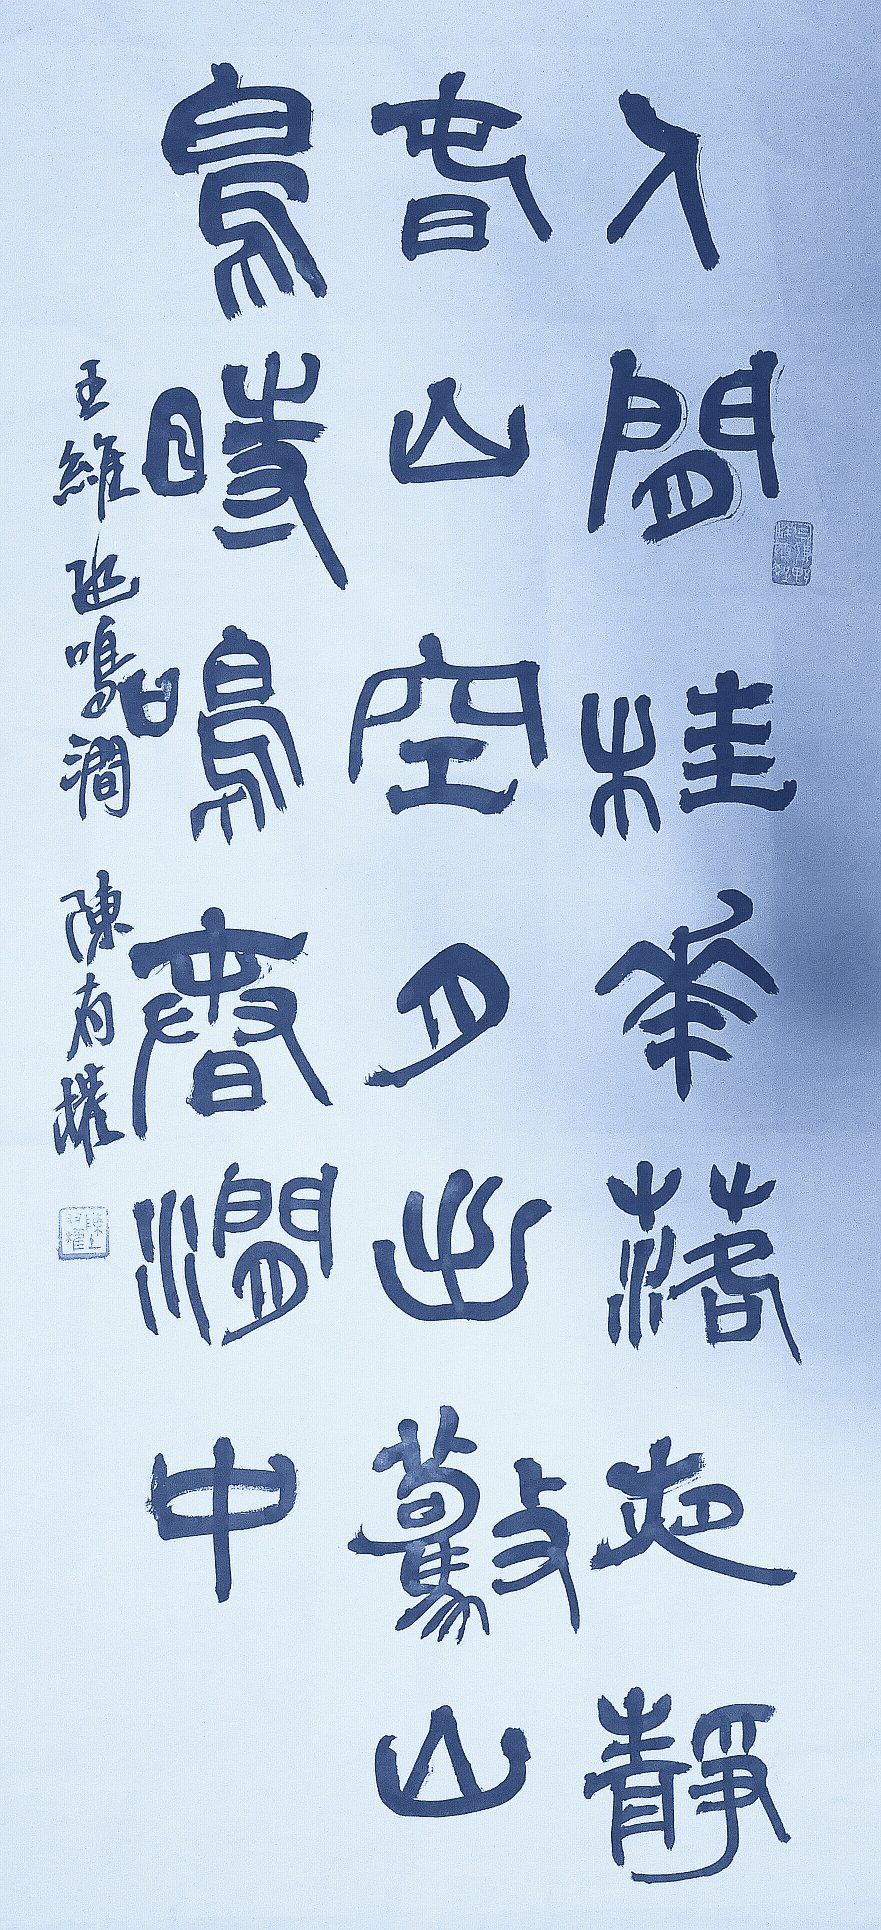 人閒桂花落夜靜
春山空月出驚山
鳥時鳴春澗中
王維鳥鳴澗 陳有